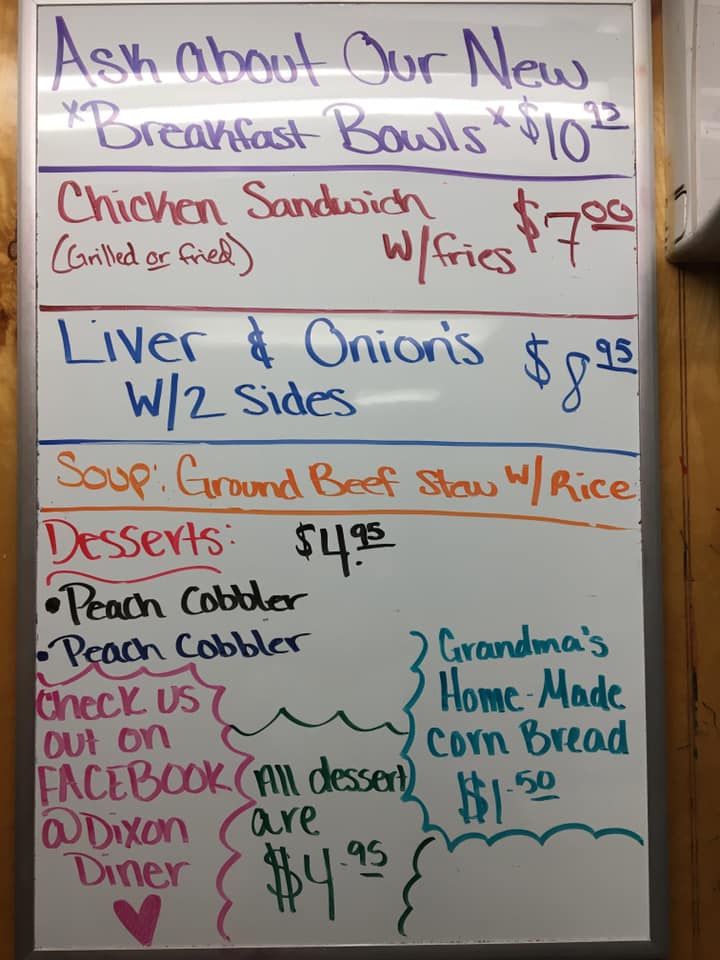 Ask about Our New
*Breakfast Bowls* $10.95
Chicken Sandwich $7.00
(Grilled or fried) W/fries
Liver & Onion's $8.95
W/2 Sides
Soup: Ground Beef Stew W/Rice
Desserts: $4.95
•Peach Cobbler
•Peach Cobbler
Grandma's
Home-Made
corn Bread
$1.50
Check us
out on
FACEBOOK
@Dixon
Diner
All dessert
are
$4.95